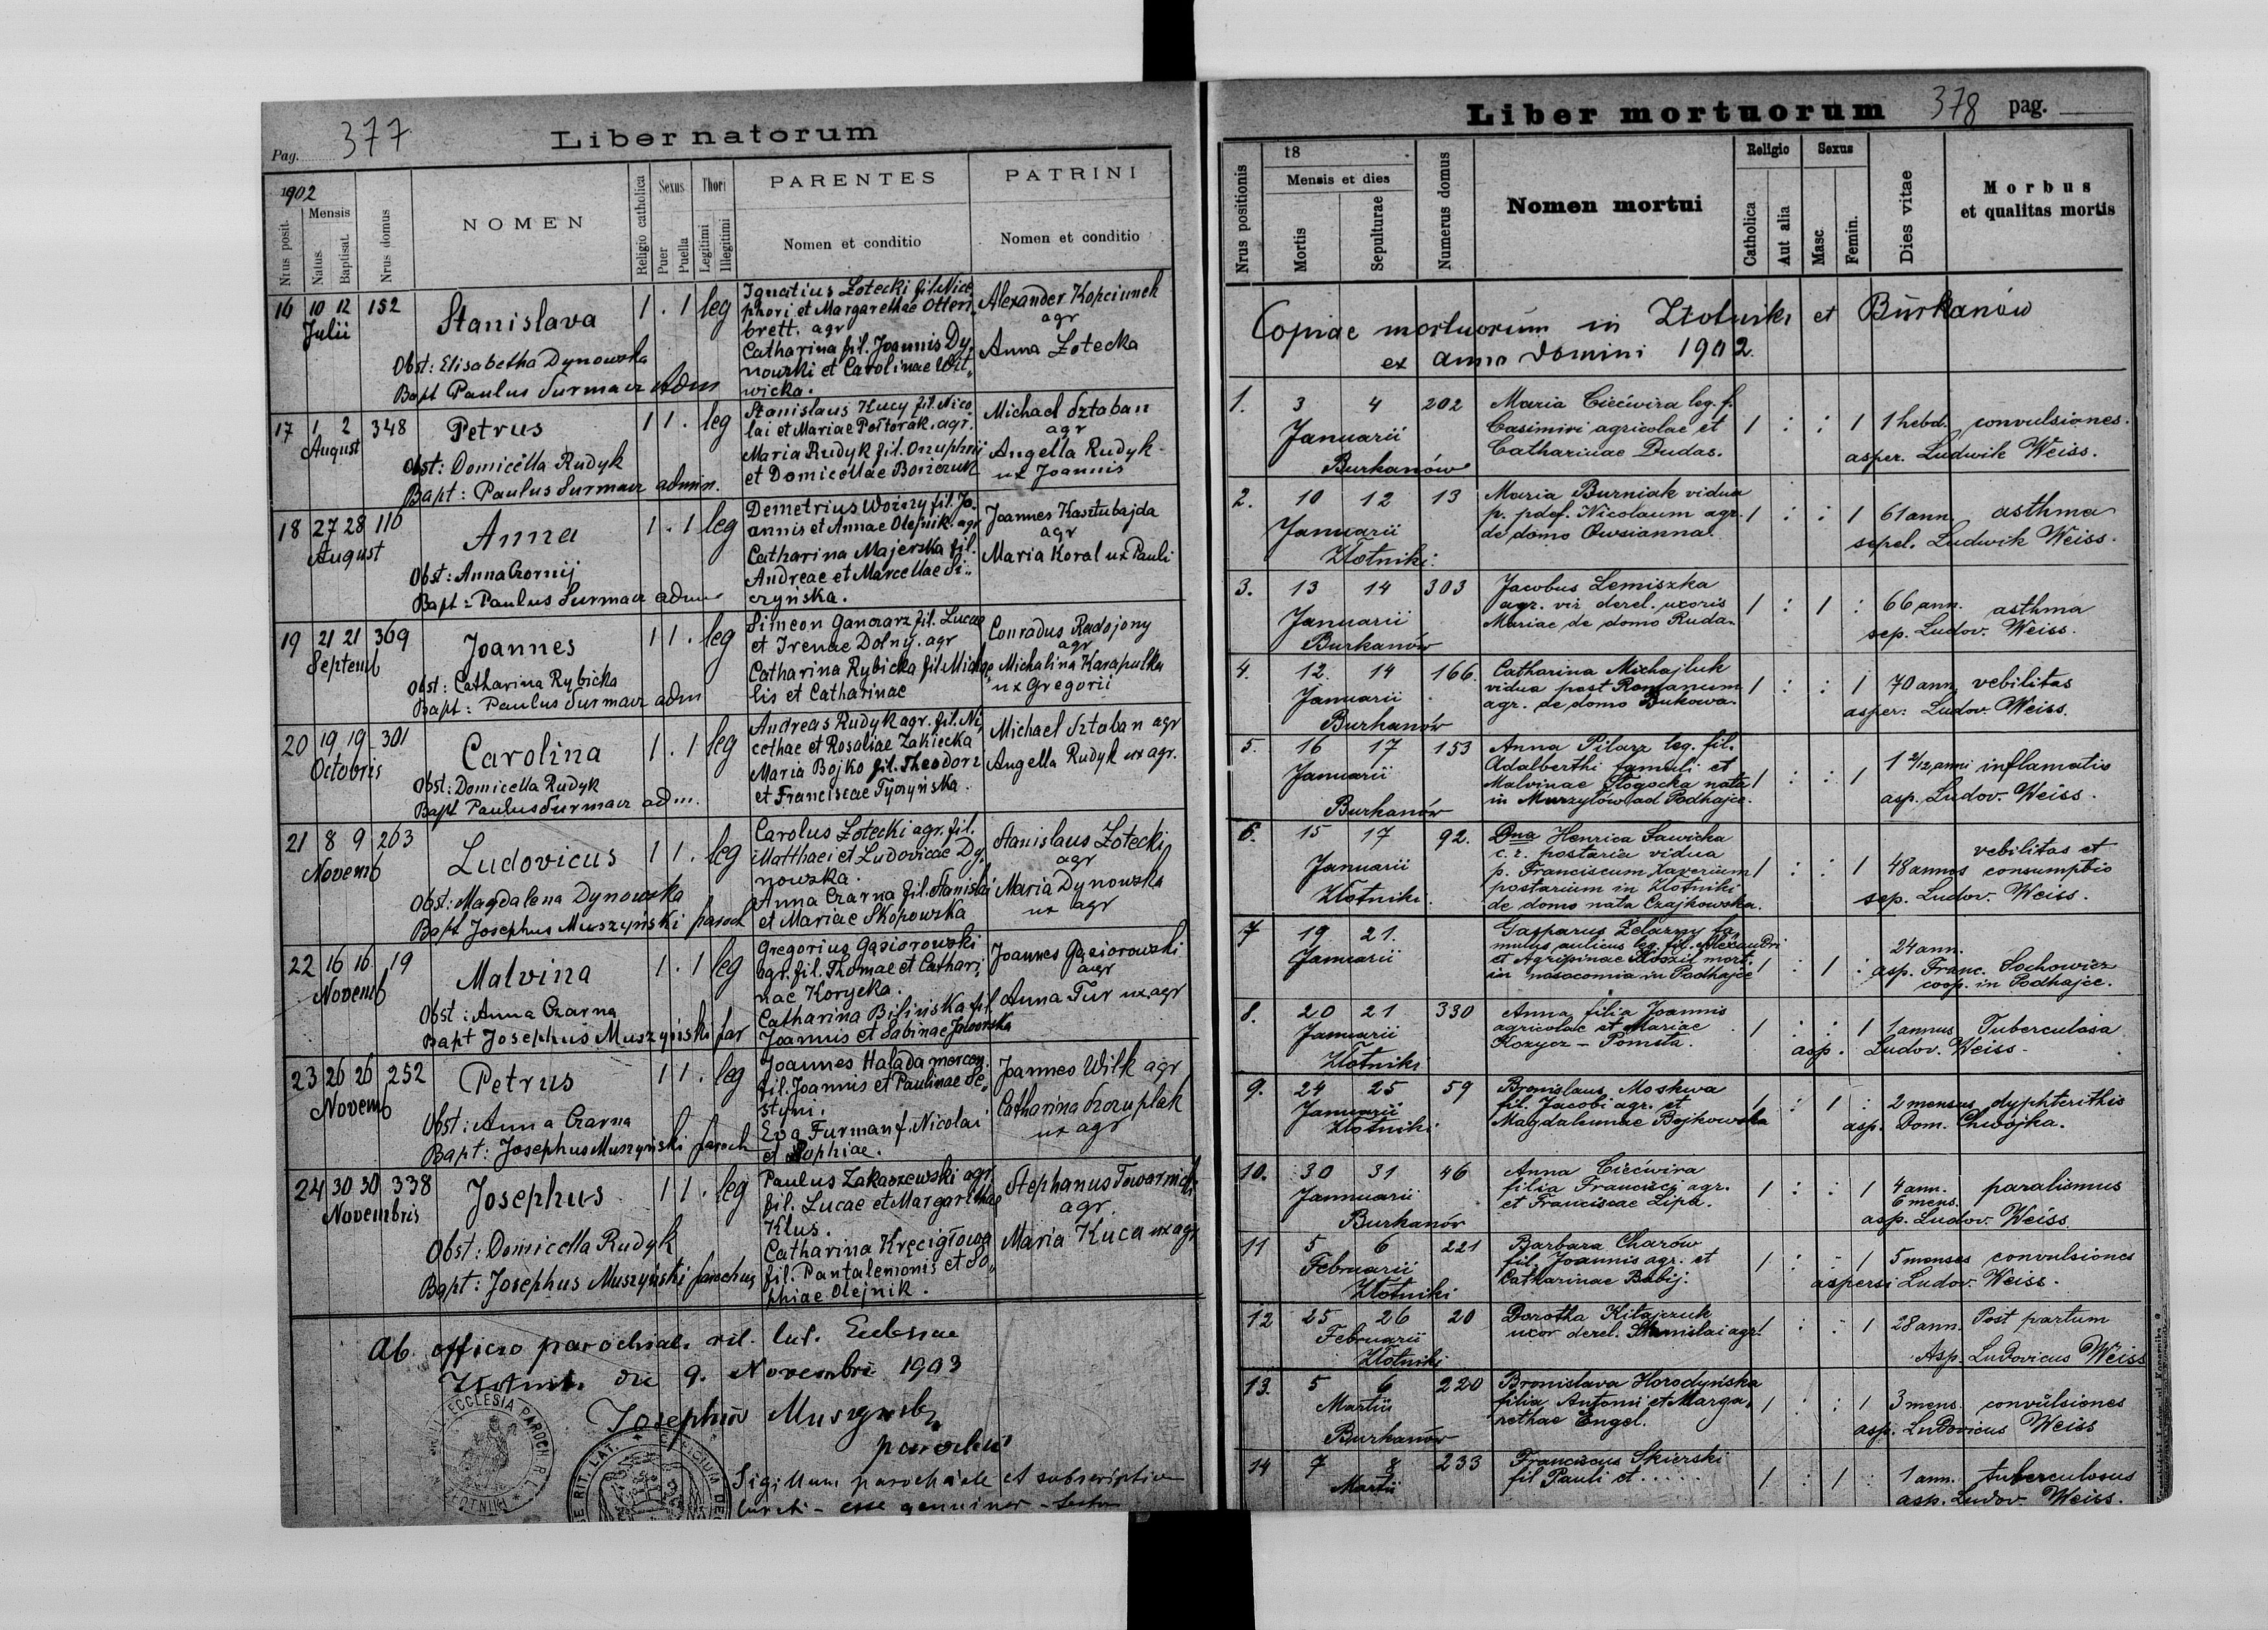 Pag. 377
Liber natorum
1902
Nrus posit.
Mensis
Natus.
Baptisat.
Nrus domus
NOMEN
Religio catholica
Sexus
Puer
Puella
Thori
Legitimi
Illegitimi
PARENTES
Nomen et conditio
PATRINI
Nomen et conditio
16 10 12 152 Stanislava 1 . 1 leg
Julii
Obst: Elisabetha Dynowska
Bapt Paulus Surmacz Adm
Ignatius Zotecki fil. Nice
phori et Margarethae Otten
brett. agr
Catharina fil. Joannis Dy
nowski et Carolinae Wit„
wicka.
Alexander Kopciuneh
agr
Anna Zotecka
17 1 2 348 Petrus 1 1 . leg
August
Obst: Domicella Rudyk
Bapt: Paulus Surmacz admin.
Stanislaus Kucy fil. Nico
lai et Mariae Połtorak. agr.
Maria Rudyk fil. Onuphrii
et Domicellae Bończuk
Michael Sztaban
agr
Angella Rudyk
ux Joannis
18 27 28 110 Anna 1 . 1 leg
August
Obst: Anna Czornij
Bapt: Paulus Surmacz adm
Demetrius Woźny fil. Jo
annis et Annae Olejnik. agr
Catharina Majerska fil.
Andreae et Marcellae Si„
czyńska.
Joannes Kasztubajda
agr
Maria Koral ux Pauli
19 21 21 369 Joannes 1 1 . leg
Septemb
Obst: Catharina Rybicka
Bapt: Paulus Surmacz adm
Simeon Ganczarz fil. Lucae
et Irenae Dolny. agr
Catharina Rybicka fil Micha
lis et Catharinae
Conradus Radojony
agr
Michalina Karapulka
ux Gregorii
20 19 19 301 Carolina 1 . 1 leg
Octobris
Obst: Domicella Rudyk
Bapt Paulus Surmacz adm.
Andreas Rudyk agr. fil. Ni
cethae et Rosaliae Zakiecka
Maria Bojko fil. Theodori
et Franciscae Tyczyńska.
Michael Sztaban agr
Angella Rudyk ux agr.
21 8 9 263 Ludovicus 1 1 . leg
Novemb
Obst: Magdalena Dynowska
Bapt Josephus Muszyński paroch
Carolus Zotecki agr. fil.
Matthaei et Ludovicae Dy„
nowska.
Anna Czarna fil. Stanislai
et Mariae Skopowska
Stanislaus Zotecki
agr
Maria Dynowska
ux agr
22 16 16 19 Malvina 1 . 1 leg
Novemb
Obst: Anna Czarna
Bapt Josephus Muszyński par
Gregorius Gąsiorowski
agr. fil. Thomae et Cathari
nae Korycka.
Catharina Bilińska fil.
Joannis et Sabinae Jaworska
Joannes Gąsiorowski
agr
Anna Tur ux agr
23 26 26 252 Petrus 1 1 . leg
Novemb
Obst: Anna Czarna
Bapt: Josephus Muszyński paroch
Joannes Halada mercen.
fil. Joannis et Paulinae Se„
styni.
Eva Furman f. Nicolai
et Sophiae.
Joannes Wilk agr
Catharina Szczuplak
ux agr
24 30 30 338 Josephus 1 1 . leg
Novembris
Obst: Domicella Rudyk
Bapt: Josephus Muszyński parochus
Paulus Zakaszewski agr.
fil. Lucae et Margarethae
Klus.
Catharina Kręcigłowa
fil. Pantalemonis et So„
phiae Olejnik.
Stephanus Towarnicki
agr.
Maria Kuca ux agr
Ab officio parochiali rit. lat. Ecclesiae
Złotnik. die 9. Novembris 1903
Josephus Muszyński
parochus
ECCLESIA PAROCH R.L.
ZŁOTNIKI
RIT. LAT.
Sigillum parochiale et subscriptio
esse genuinas
Liber mortuorum 378 pag.
Nrus positionis
18
Mensis et dies
Mortis
Sepulturae
Numerus domus
Nomen mortui
Religio
Catholica
Aut alia
Sexus
Masc.
Femin.
Dies vitae
Morbus
et qualitas mortis
Copiae mortuorum in Złotniki et Burkanów
ex anno Domini 1902.
1. 3 4 202
Januarii
Burkanów
Maria Cićwira leg. f.
Casimiri agricolae et
Catharinae Dudas.
1 : : 1 1 hebd. convulsiones.
asper. Ludwik Weiss.
2. 10 12 13
Januarii
Złotniki.
Maria Burniak vidua
p. pdef. Nicolaum agr.
de domo Owsianna.
1 : : 1 61 ann. asthma
sepel. Ludwik Weiss.
3. 13 14 303
Januarii
Burkanów
Jacobus Lemiszka
agr. vir derel. uxoris
Mariae de domo Ruda.
1 : 1 : 66 ann. asthma
sep. Ludov. Weiss.
4. 12. 14 166.
Januarii
Burkanów
Catharina Michajluk
vidua post Romanum
agr. de domo Bukowa.
1 : : 1 70 ann. vebilitas
asper: Ludov. Weiss.
5. 16 17 153
Januarii
Burkanów
Anna Pilarz leg. fil.
Adalberthi famuli et
Malvinae Głogocka nata
in Murzyłów ad Podhajce.
1 : : 1 1 2/12 anni inflamatio
asp. Ludov. Weiss.
6. 15 17 92.
Januarii
Złotniki.
Dna Henrica Sawicka
c. r. postaria vidua
p. Franciscum Xaverium
postarium in Złotniki
de domo nata Czajkowska.
1 : : 1 48 annos vebilitas et
consumptio
sep. Ludov. Weiss.
7 19 21.
Januarii
Gasparus Zelazny fa„
mulus aulicus leg. fil. Alexandri
et Agripinae mort.
in nosocomia in Podhajce
1 : 1 : 24 ann.
asp. Franc. Sochowicz
coop. in Podhajce.
8. 20 21 330
Januarii
Złotniki
Anna filia Joannis
agricolae et Mariae
Kozycz - Pomsta.
1 : : 1 1 annus Tuberculosa
asp. Ludov. Weiss.
9. 24 25 59
Januarii
Złotniki
Bronislaus Moskwa
fil. Jacobi agr. et
Magdalenae Bojkowska
1 : 1 : 2 menses dyphterithis
asp. Dom. Chwojka.
10. 30 31 46
Jannuarii
Burkanów
Anna Cićwira
filia Francisci agr.
et Franciscae Lipa.
1 : : 1 4 ann. paralismus
6 mens.
asp. Ludov. Weiss.
11 5 6 221
Februarii
Złotniki
Barbara Charów
fil. Joannis agr. et
Catharinae Babij.
1 : - 1 5 menses convulsiones
aspersi Ludov. Weiss.
12 25 26 20
Februarii
Złotniki
Dorotha Kitajczuk
uxor derel. Stanislai agr.
1 : - 1 28 ann. Post partum
Asp. Ludovicus Weiss
13. 5 6 220
Martii
Burkanów
Bronislava Horodyńska
filia Antonii et Marga„
rethae Engel.
1 : : 1 3 mens. convulsiones
asp. Ludovicus Weiss
14 7 8 233
Martii
Franciscus Skierski
fil Pauli et . . . . .
1 : 1 : 1 ann. tuberculosus
asp. Ludov. Weiss.